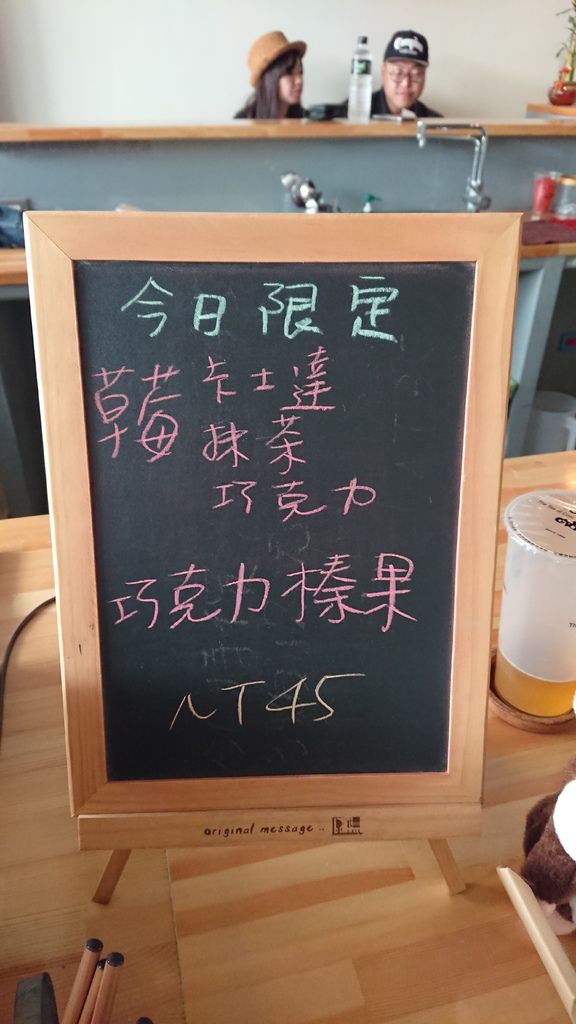 今日限定
草莓 卡士達
抹茶
巧克力
巧克力榛果
NT45
original message..